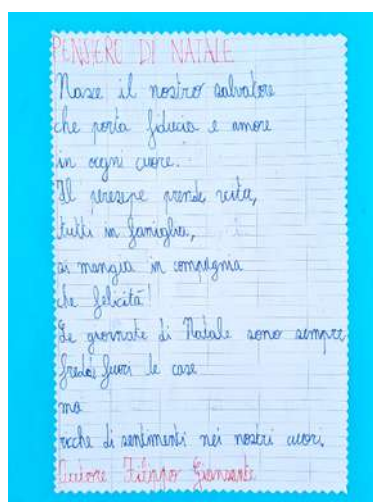 PENSIERO DI NATALE
Nasce il nostro salvatore
che porta fiducia e amore
in ogni cuore.
Il presepe prende vita,
tutti in famiglia,
si mangia in compagnia
che felicità!
Le giornate di Natale sono sempre
fredde fuori le case
ma
ricche di sentimenti nei nostri cuori.
Autore Filippo Giansanti